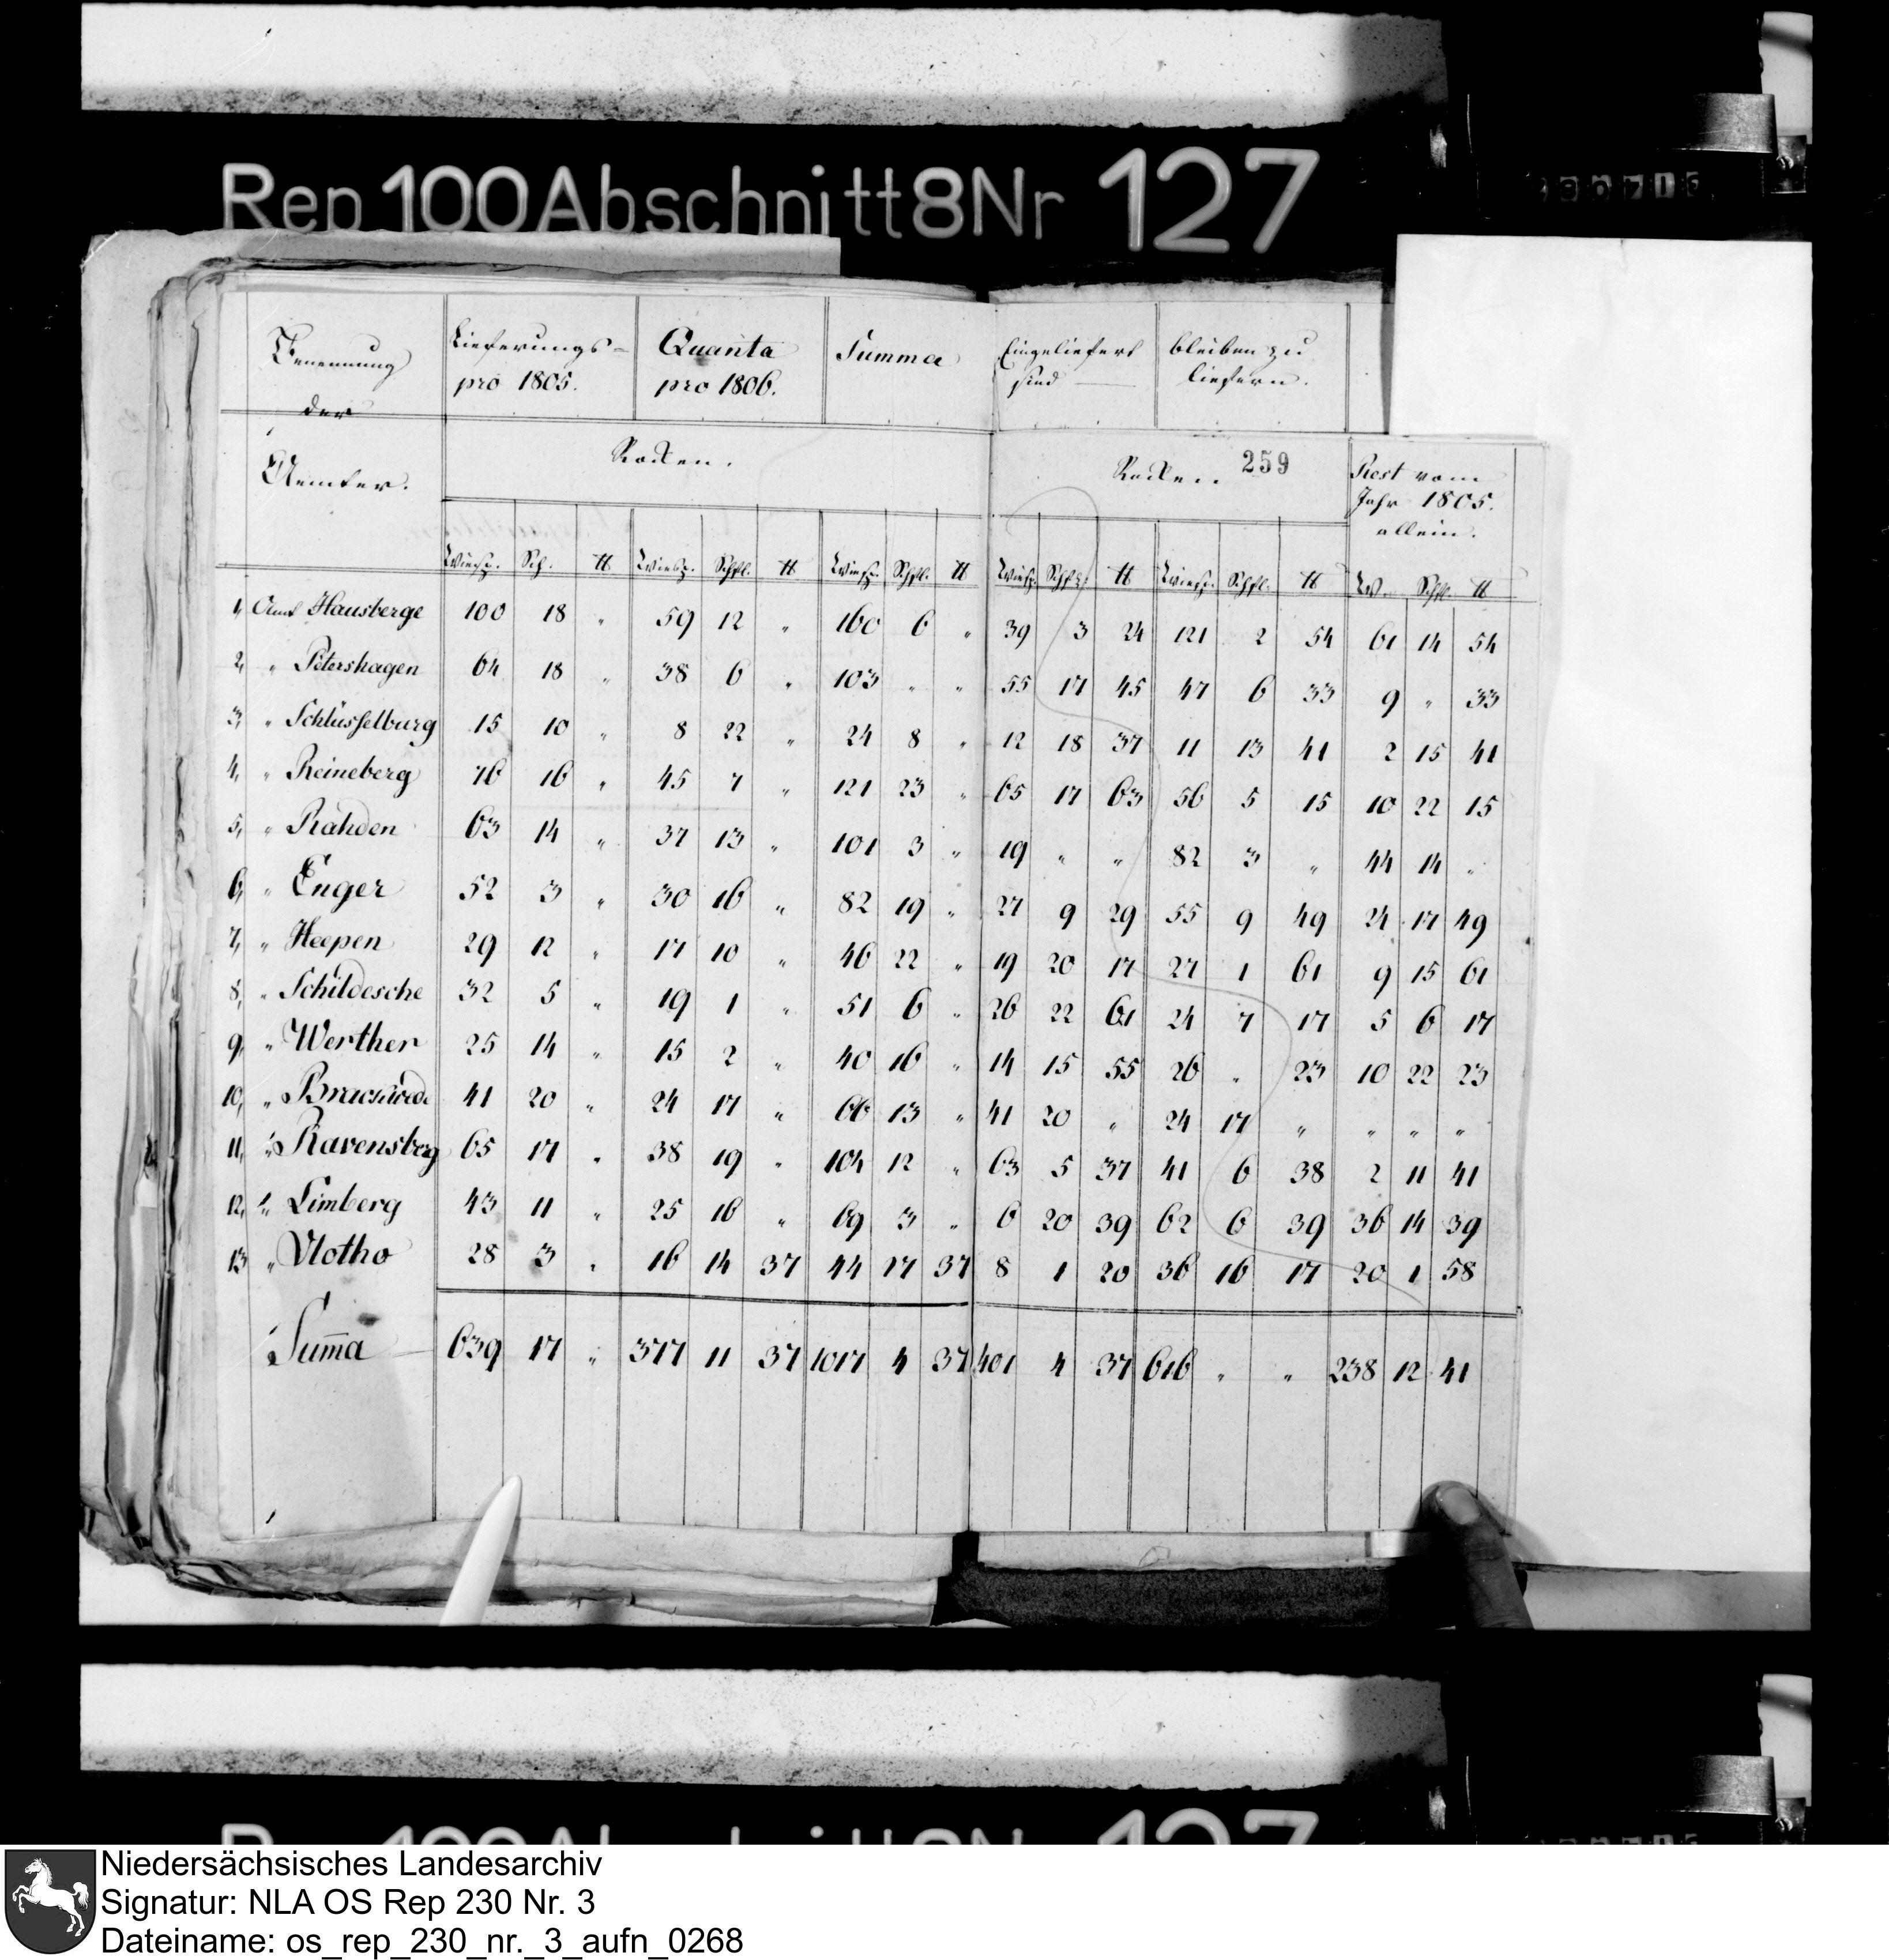 Rep 100 Abschnitt 8 Nr 127
Benennung der Aemter.
Lieferungs- Quanta Summa Eingeliefert sind bleiben zu liefern.
pro 1805. pro 1806.
Rocken. Rocken. 259 Rest vom Jahr 1805. allein.
Winsp. Sch. ℔ Winsp. Schfl. ℔ Winsp. Schfl. ℔ Winsp. Schfl. ℔ Winsp. Schfl. ℔ W. Schfl. ℔
1, Amt Hausberge 100 18 " 59 12 " 160 6 " 39 3 24 121 2 54 61 14 54
2, " Petershagen 64 18 " 38 6 " 103 " " 55 17 45 47 6 33 9 " 33
3, " Schlüsselburg 15 10 " 8 22 " 24 8 " 12 18 37 11 13 41 2 15 41
4, " Reineberg 76 16 " 45 7 " 121 23 " 65 17 63 56 5 15 10 22 15
5, " Rahden 63 14 " 37 13 " 101 3 " 19 " " 82 3 " 44 14 "
6, " Enger 52 3 " 30 16 " 82 19 " 27 9 29 55 9 49 24 17 49
7, " Heepen 29 12 " 17 10 " 46 22 " 19 20 17 27 1 61 9 15 61
8, " Schildesche 32 5 " 19 1 " 51 6 " 26 22 61 24 7 17 5 6 17
9, " Werther 25 14 " 15 2 " 40 16 " 14 15 55 26 " 23 10 22 23
10, " Brackwede 41 20 " 24 17 " 66 13 " 41 20 " 24 17 " " " "
11, " Ravensberg 65 17 " 38 19 " 104 12 " 63 5 37 41 6 38 2 11 41
12, " Limberg 43 11 " 25 16 " 69 3 " 6 20 39 62 6 39 36 14 39
13 " Vlotho 28 3 " 16 14 37 44 17 37 8 1 20 36 16 17 20 1 58
Sum̅a 639 17 " 377 11 37 1017 4 37 401 4 37 616 " " 238 12 41
Niedersächsisches Landesarchiv
Signatur: NLA OS Rep 230 Nr. 3
Dateiname: os_rep_230_nr._3_aufn_0268